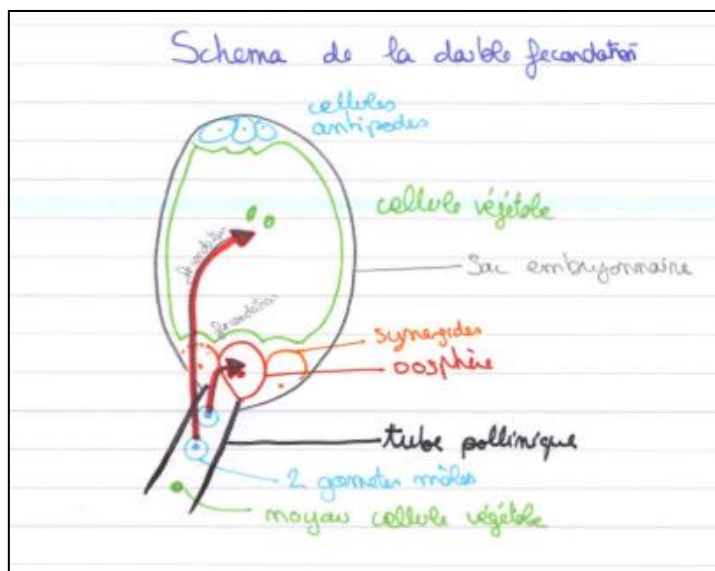 Schema de la double fecondation
cellules
antipodes
cellule végétale
fecondation
Sac embryonnaire
fecondation
synergides
oosphère
tube pollinique
2 gametes mâles
noyau cellule végétale